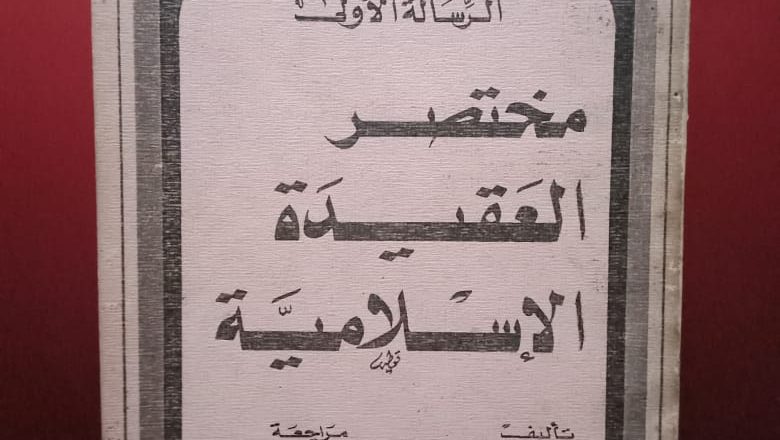 الرسالة الأولى
مختصر
العَقيدَة
الإسْلاميَّة
تأليف مراجعة